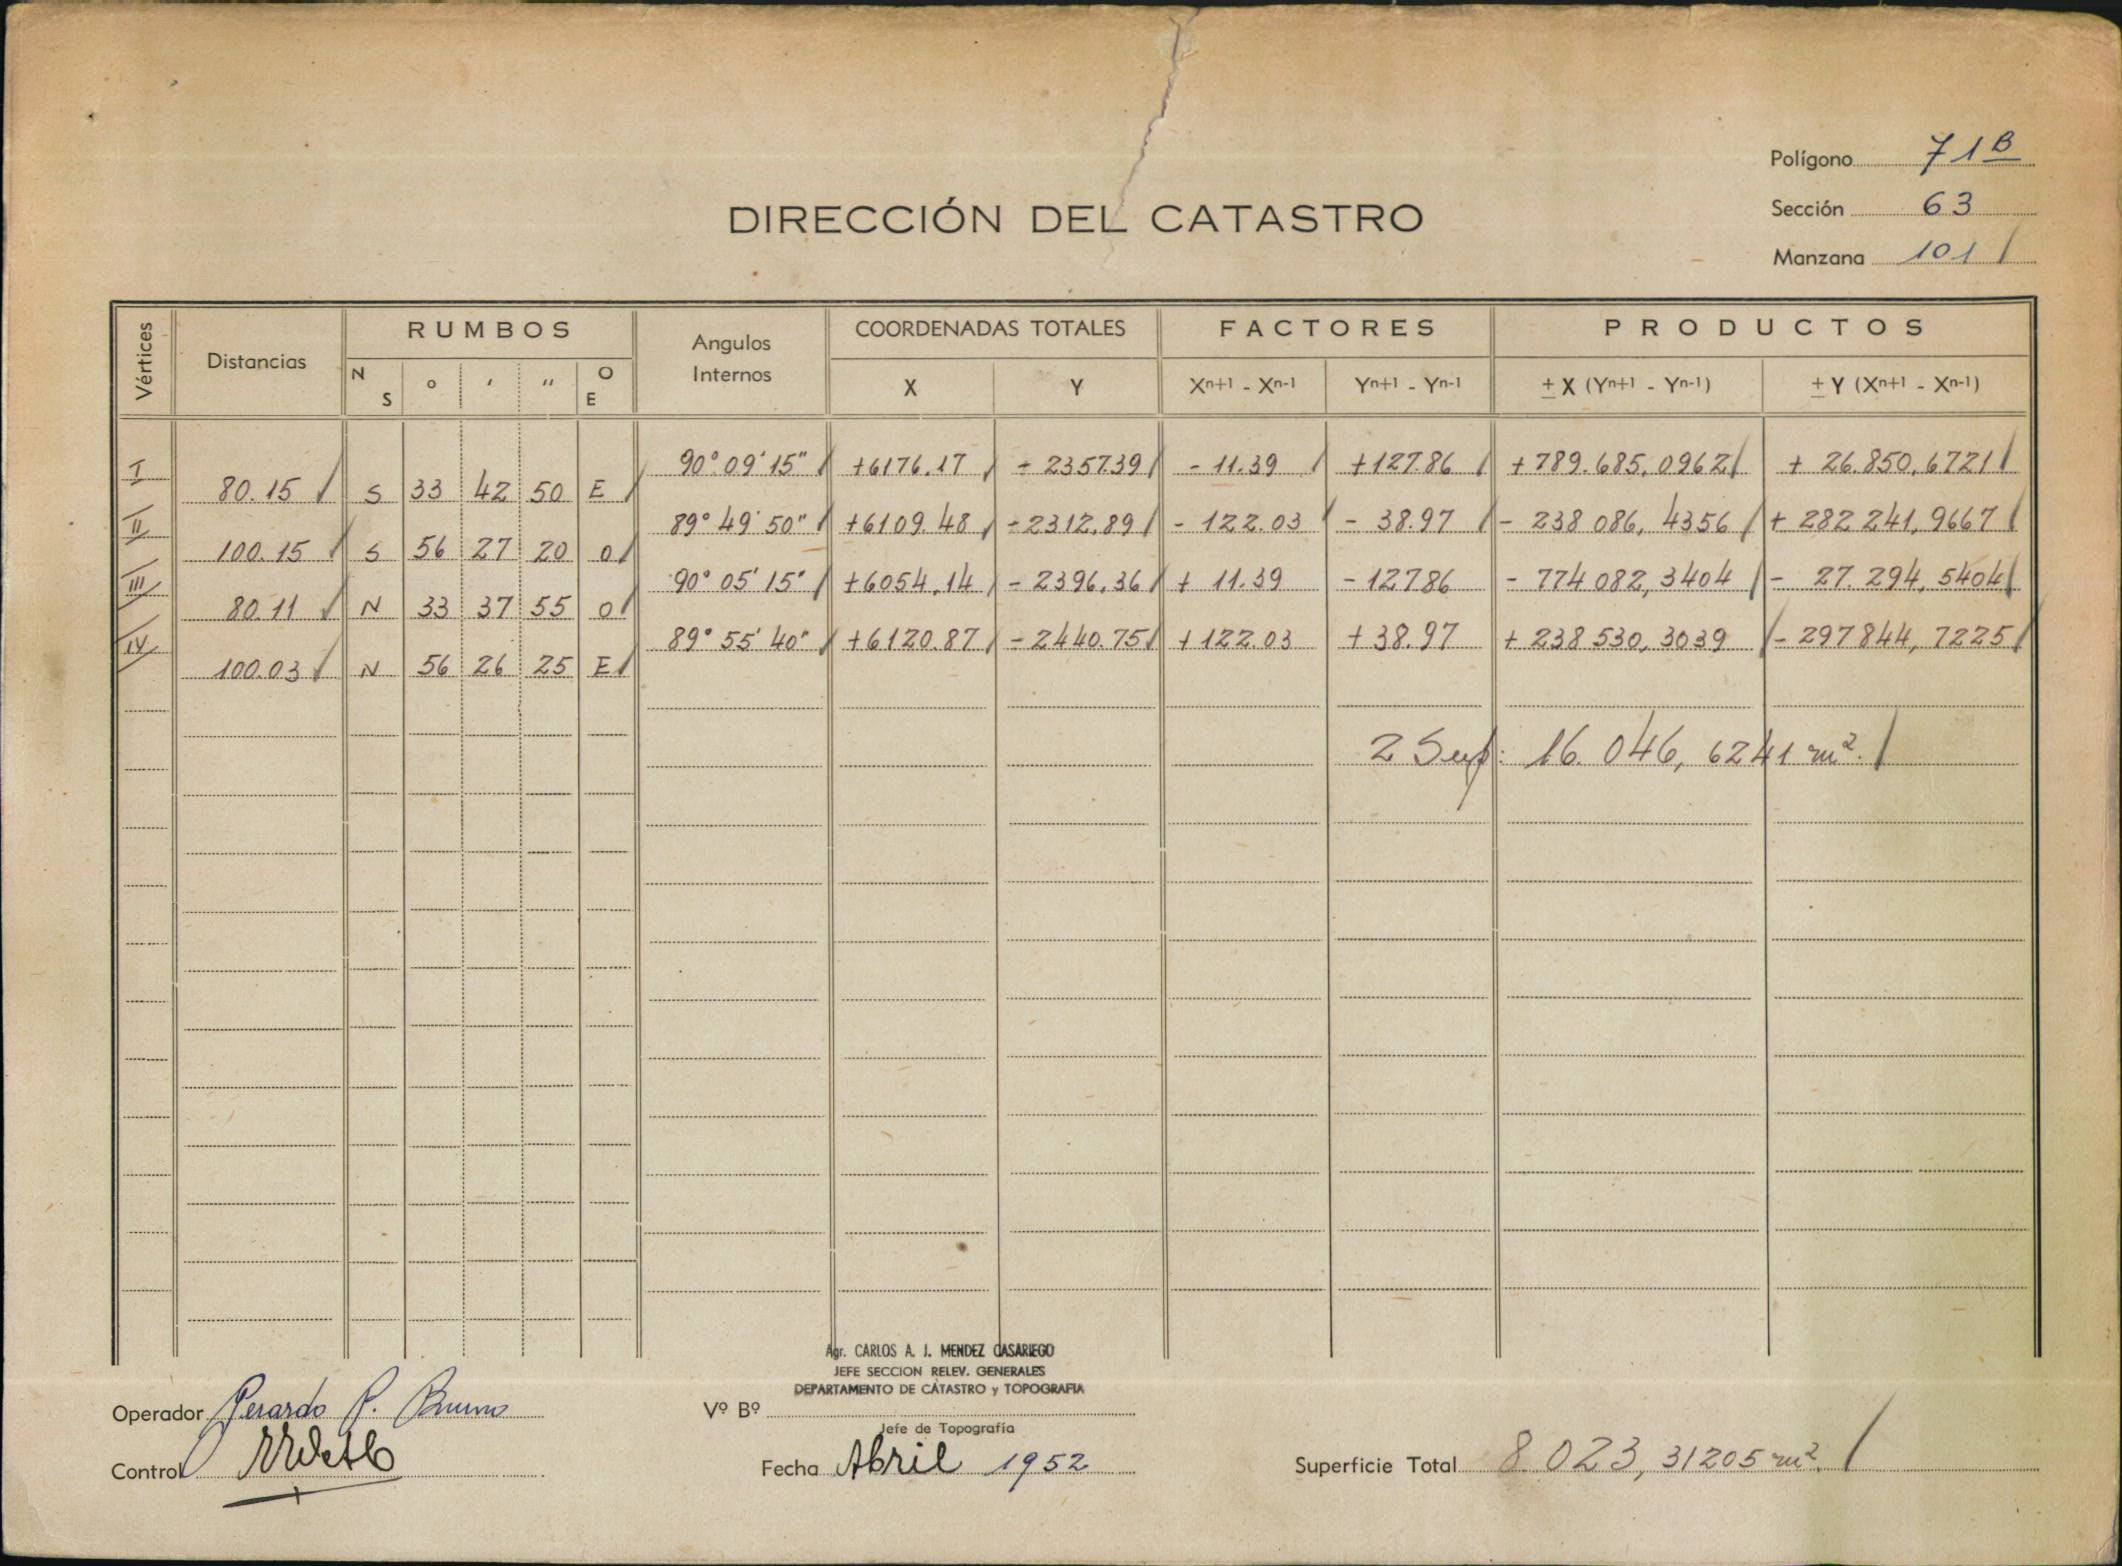 Polígono 71 B
Sección 63
Manzana 101
DIRECCIÓN DEL CATASTRO
Vértices Distancias RUMBOS Angulos Internos COORDENADAS TOTALES FACTORES PRODUCTOS
N S ° ' " O E X Y Xn+1 - Xn-1 Yn+1 - Yn-1 ± X (Yn+1 - Yn-1) ± Y (Xn+1 - Xn-1)
I 90° 09' 15" +6176.17 - 2357.39 - 11.39 +127.86 +789.685,0962 + 26.850,6721
80.15 S 33 42 50 E
II 89° 49' 50" +6109.48 - 2312.89 - 122.03 - 38.97 - 238 086, 4356 + 282 241, 9667
100.15 S 56 27 20 O
III 90° 05' 15" +6054.14 - 2396,36 + 11.39 - 127.86 - 774 082, 3404 - 27. 294, 5404
80.11 N 33 37 55 O
IV 89° 55' 40" +6120.87 - 2440.75 + 122.03 + 38.97 + 238 530, 3039 - 297 844, 7225
100.03 N 56 26 25 E
2 Sup: 16.046, 6241 m².
Agr. CARLOS A. J. MENDEZ CASARIEGO
JEFE SECCION RELEV. GENERALES
DEPARTAMENTO DE CATASTRO y TOPOGRAFIA
Operador Gerardo P. Bruno
Vº Bº
Jefe de Topografía
Control
Fecha Abril 1952
Superficie Total 8.023, 31205 m².